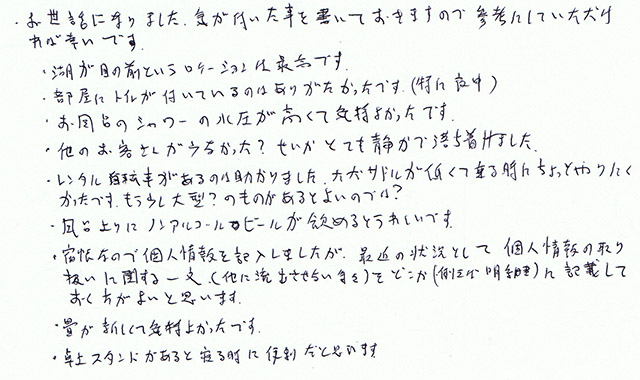 ・お世話になりました。気が付いた事を書いておきますので参考にしていただけ
れば幸いです。
・湖が目の前というロケーションは最高です。
・部屋にトイレが付いているのはありがたかったです。(特に夜中)
・お風呂のシャワーの水圧が高くて気持よかったです。
・他のお客さんが少なかった?せいかとても静かで落ち着けました。
・レンタル自転車があるのは助かりました。ただサドルが低くて乗る時にちょっとやりにく
かったです。もう少し大型?のものがあるとよいのでは?
・風呂上りにノンアルコールビールが飲めるとうれしいです。
・宿帳なので個人情報を記入しましたが、最近の状況として個人情報の取り
扱いに関する一文(他に流出させない等を)をどこか(例えば明細書)に記載して
おく方がよいと思います。
・畳が新しくて気持よかったです。
・卓上スタンドがあると寝る時に便利だと思います